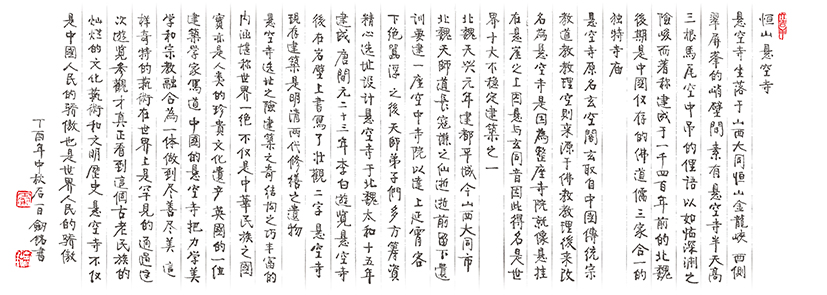 恒山悬空寺
悬空寺坐落于山西大同恒山金龍峡西側
翠屏峯的峭壁間素有悬空寺半天高
三根馬尾空中吊的俚語以如临深渊之
險峻而著称建成于一千四百年前的北魏
後期是中國仅存的佛道儒三家合一的
独特寺庙
悬空寺原名玄空閣玄取自中國傳统宗
教道教教理空则来源于佛教教理後来改
名為悬空寺是因為整座寺院就像悬挂
在悬崖之上因悬与玄同音因此得名是世
界十大不稳定建築之一
北魏天兴元年建都平城今山西大同市
北魏天師道長寇谦之仙逝逝前留下遗
训要建一座空中寺院以達上延霄客
下绝嚣浮之後天師弟子們多方筹資
精心选址設计悬空寺于北魏太和十五年
建成唐開元二十三年李白遊览悬空寺
後在岩壁上書寫了壮觀二字悬空寺
現存建築是明清两代修缮之遺物
悬空寺选址之險建築之奇结构之巧丰富的
内涵堪称世界一绝不仅是中華民族之國
寳亦是人类的珍貴文化遗产英國的一位
建築学家寓道中國的悬空寺把力学美
学和宗教融合為一体做到尽善尽美這
祥奇特的藝術在世界上是罕見的通過這
次遊览参觀才真正看到這個古老民族的
灿爛的文化藝術和文明歷史悬空寺不仅
是中國人民的骄傲也是世界人民的骄傲
丁酉年中秋后一日